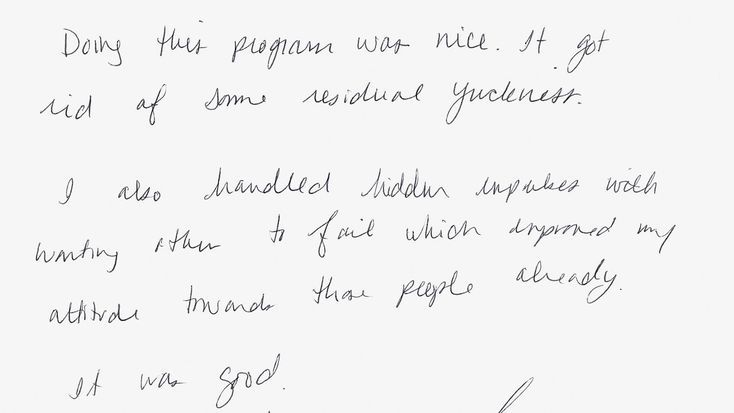 Doing this program was nice. It got
rid of some residual yuckness.
I also handled hidden impulses with
wanting other to fail which improved my
attitude towards those people already.
It was good.